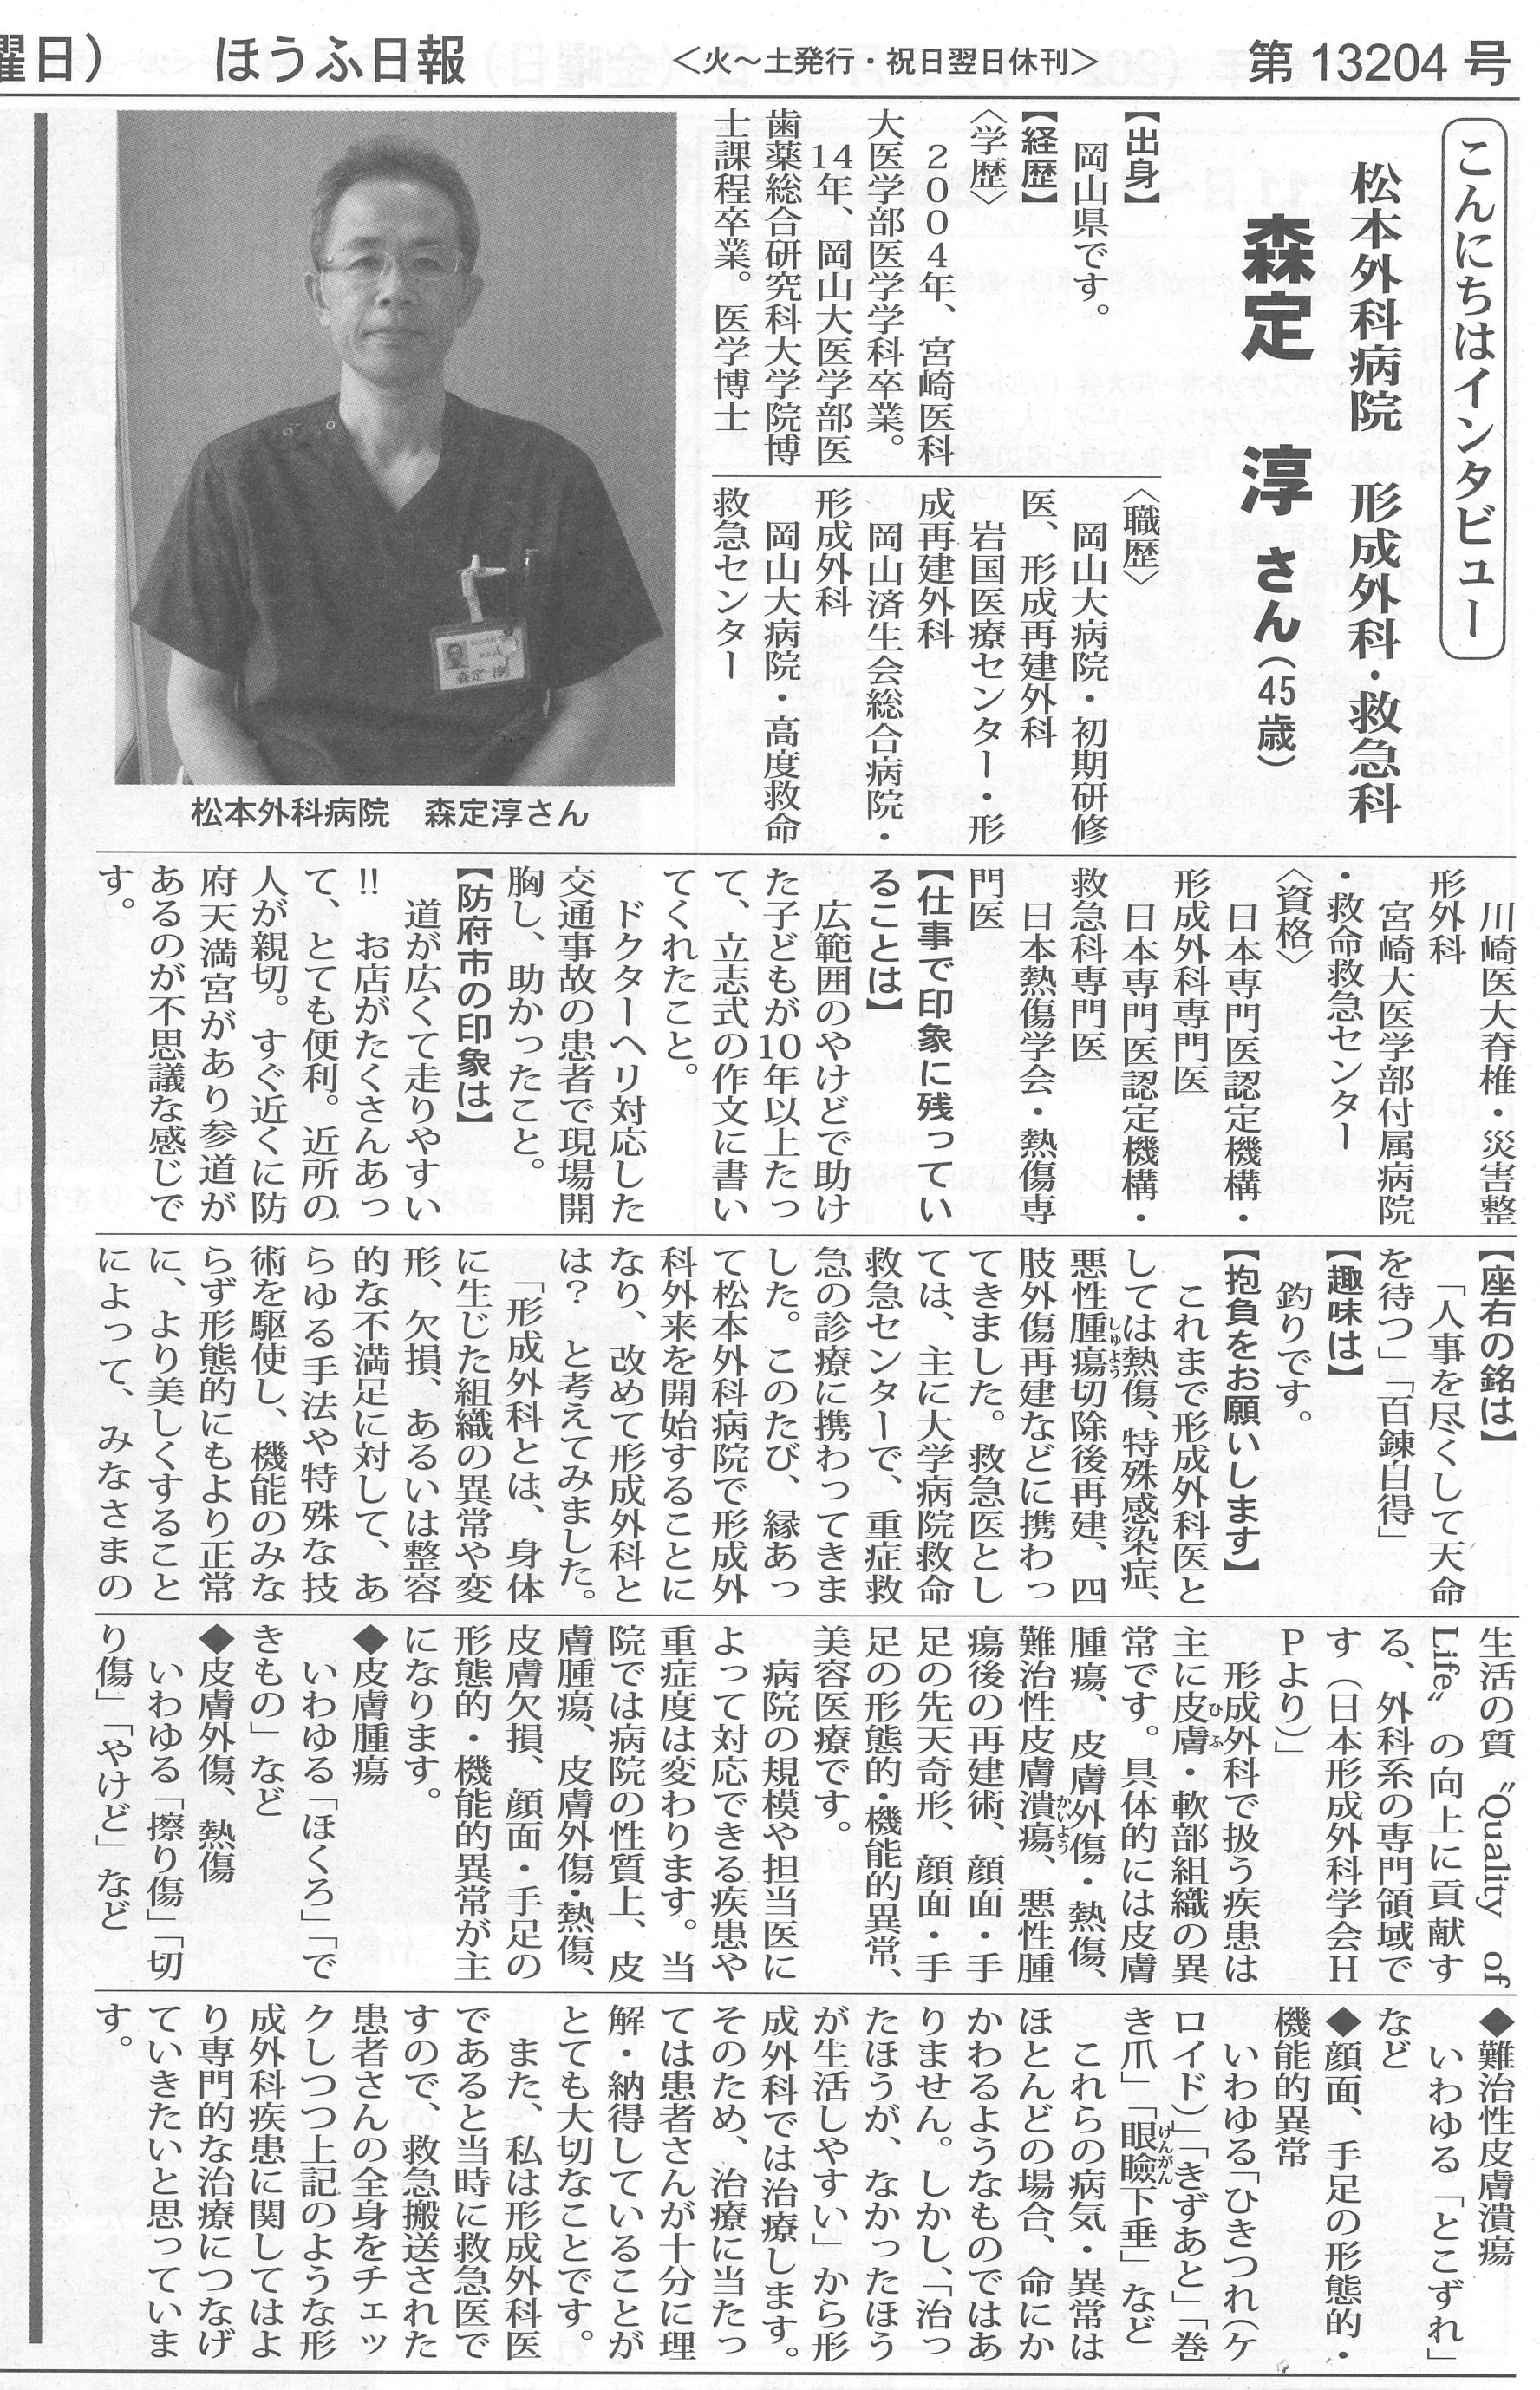 曜日）
ほうふ日報
＜火～土発行・祝日翌日休刊＞
第 13204 号
こんにちはインタビュー
松本外科病院　形成外科・救急科
森定　淳さん（45歳）
【出身】
岡山県です。
【経歴】
〈学歴〉
２００４年、宮崎医科
大医学部医学学科卒業。
14年、岡山大医学部医
歯薬総合研究科大学院博
士課程卒業。医学博士
〈職歴〉
岡山大病院・初期研修
医、形成再建外科
岩国医療センター・形
成再建外科
岡山済生会総合病院・
形成外科
岡山大病院・高度救命
救急センター
森定 淳
松本外科病院　森定淳さん
川崎医大脊椎・災害整
形外科
宮崎大医学部付属病院
・救命救急センター
〈資格〉
日本専門医認定機構・
形成外科専門医
日本専門医認定機構・
救急科専門医
日本熱傷学会・熱傷専
門医
【仕事で印象に残ってい
ることは】
広範囲のやけどで助け
た子どもが10年以上たっ
て、立志式の作文に書い
てくれたこと。
ドクターヘリ対応した
交通事故の患者で現場開
胸し、助かったこと。
【防府市の印象は】
道が広くて走りやすい
!!　お店がたくさんあっ
て、とても便利。近所の
人が親切。すぐ近くに防
府天満宮があり参道が
あるのが不思議な感じで
す。
【座右の銘は】
「人事を尽くして天命
を待つ」「百錬自得」
【趣味は】
釣りです。
【抱負をお願いします】
これまで形成外科医と
しては熱傷、特殊感染症、
悪性腫瘍しゅよう切除後再建、四
肢外傷再建などに携わっ
てきました。救急医とし
ては、主に大学病院救命
救急センターで、重症救
急の診療に携わってきま
した。このたび、縁あっ
て松本外科病院で形成外
科外来を開始することに
なり、改めて形成外科と
は？　と考えてみました。
「形成外科とは、身体
に生じた組織の異常や変
形、欠損、あるいは整容
的な不満足に対して、あ
らゆる手法や特殊な技
術を駆使し、機能のみな
らず形態的にもより正常
に、より美しくすること
によって、みなさまの
生活の質〝Quality of
Life〟の向上に貢献す
る、外科系の専門領域で
す（日本形成外科学会Ｈ
Ｐより）」
形成外科で扱う疾患は
主に皮膚ひふ・軟部組織の異
常です。具体的には皮膚
腫瘍、皮膚外傷・熱傷、
難治性皮膚潰瘍かいよう、悪性腫
瘍後の再建術、顔面・手
足の先天奇形、顔面・手
足の形態的・機能的異常、
美容医療です。
病院の規模や担当医に
よって対応できる疾患や
重症度は変わります。当
院では病院の性質上、皮
膚腫瘍、皮膚外傷・熱傷、
皮膚欠損、顔面・手足の
形態的・機能的異常が主
になります。
◆皮膚腫瘍
いわゆる「ほくろ」「で
きもの」など
◆皮膚外傷、熱傷
いわゆる「擦り傷」「切
り傷」「やけど」など
◆難治性皮膚潰瘍
いわゆる「とこずれ」
など
◆顔面、手足の形態的・
機能的異常
いわゆる「ひきつれ（ケ
ロイド）」「きずあと」「巻
き爪」「眼瞼げんがん下垂」など
これらの病気・異常は
ほとんどの場合、命にか
かわるようなものではあ
りません。しかし、「治っ
たほうが、なかったほう
が生活しやすい」から形
成外科では治療します。
そのため、治療に当たっ
ては患者さんが十分に理
解・納得していることが
とても大切なことです。
また、私は形成外科医
であると当時に救急医で
すので、救急搬送された
患者さんの全身をチェッ
クしつつ上記のような形
成外科疾患に関してはよ
り専門的な治療につなげ
ていきたいと思っていま
す。